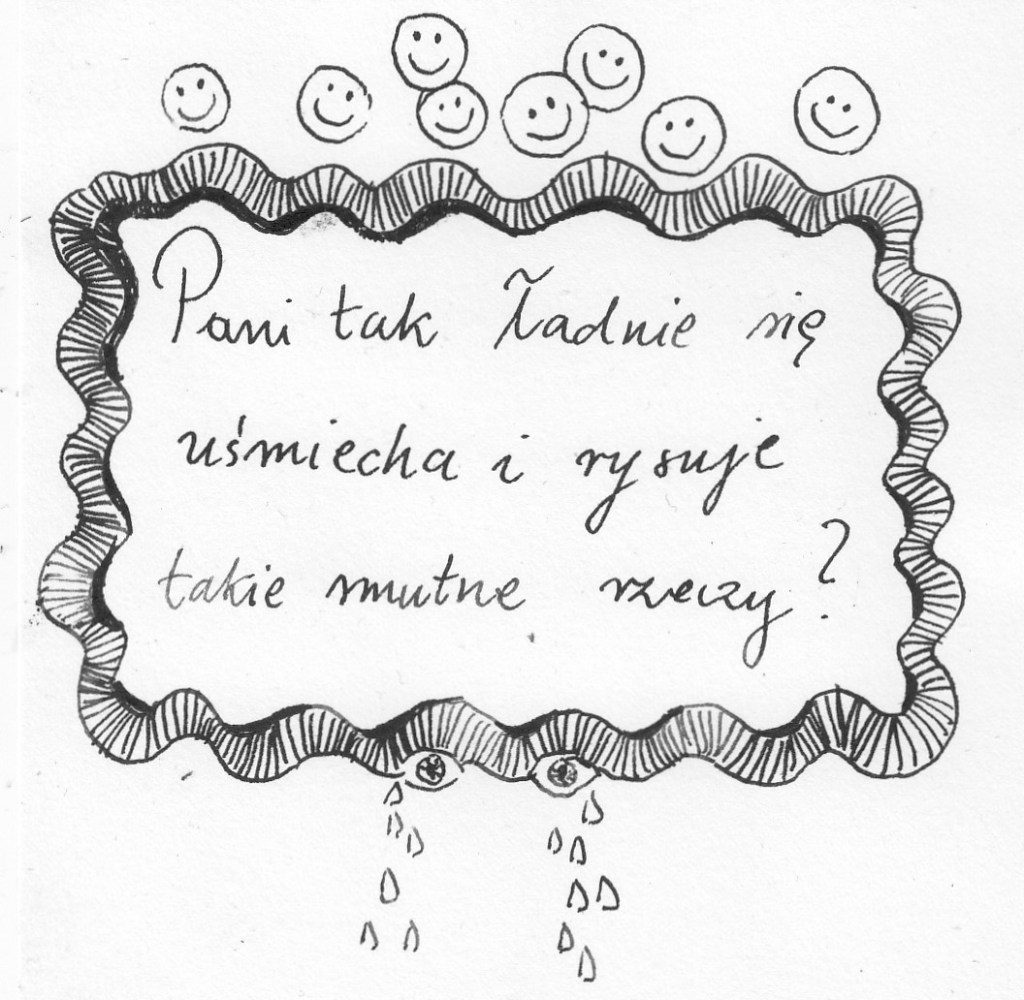 Pani tak ładnie się
uśmiecha i rysuje
takie smutne rzeczy?